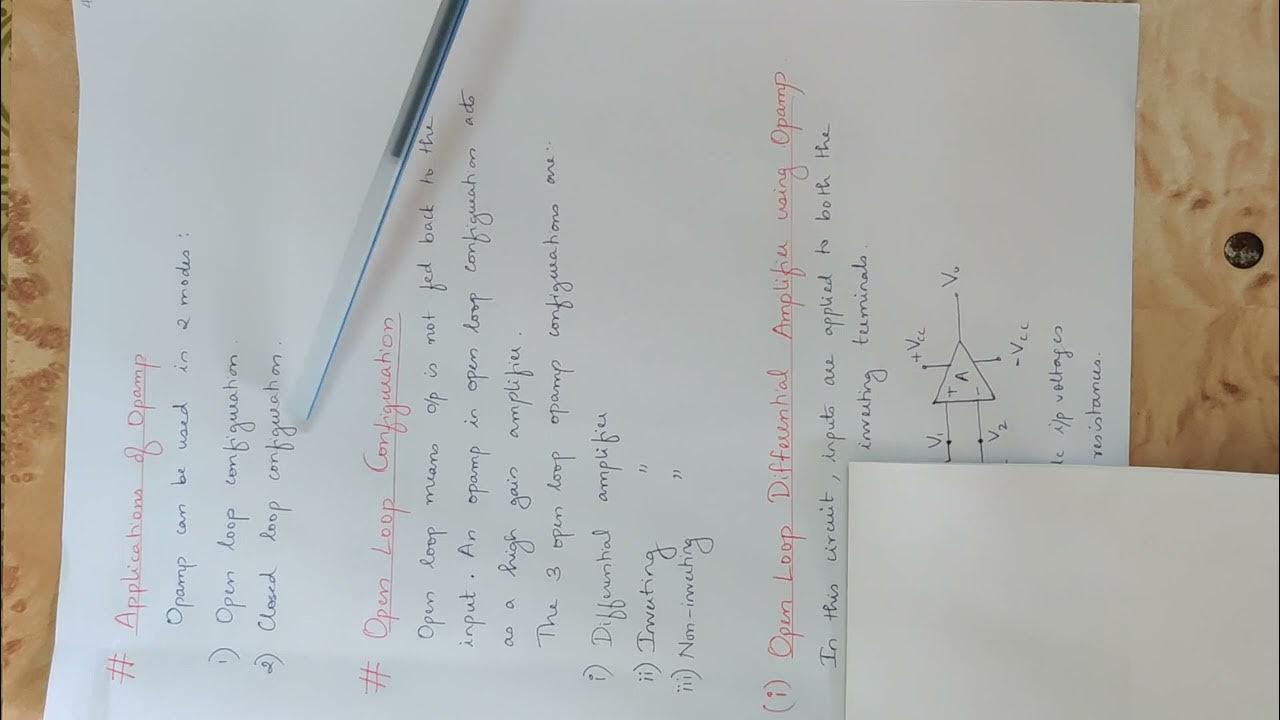 # Applications of Opamp
Opamp can be used in 2 modes:
1) Open loop configuration.
2) Closed loop configuration.
# Open Loop Configuration
Open loop means o/p is not fed back to the
input. An opamp in open loop configuration acts
as a high gain amplifier.
The 3 open loop opamp configurations are:-
i) Differential amplifier
ii) Inverting "
iii) Non-inverting "
(i) Open Loop Differential Amplifier using Opamp.
In this circuit, inputs are applied to both the
inverting terminals.
+Vcc
V1 + A Vo
V2 -
-Vcc
dc i/p voltages
resistances.